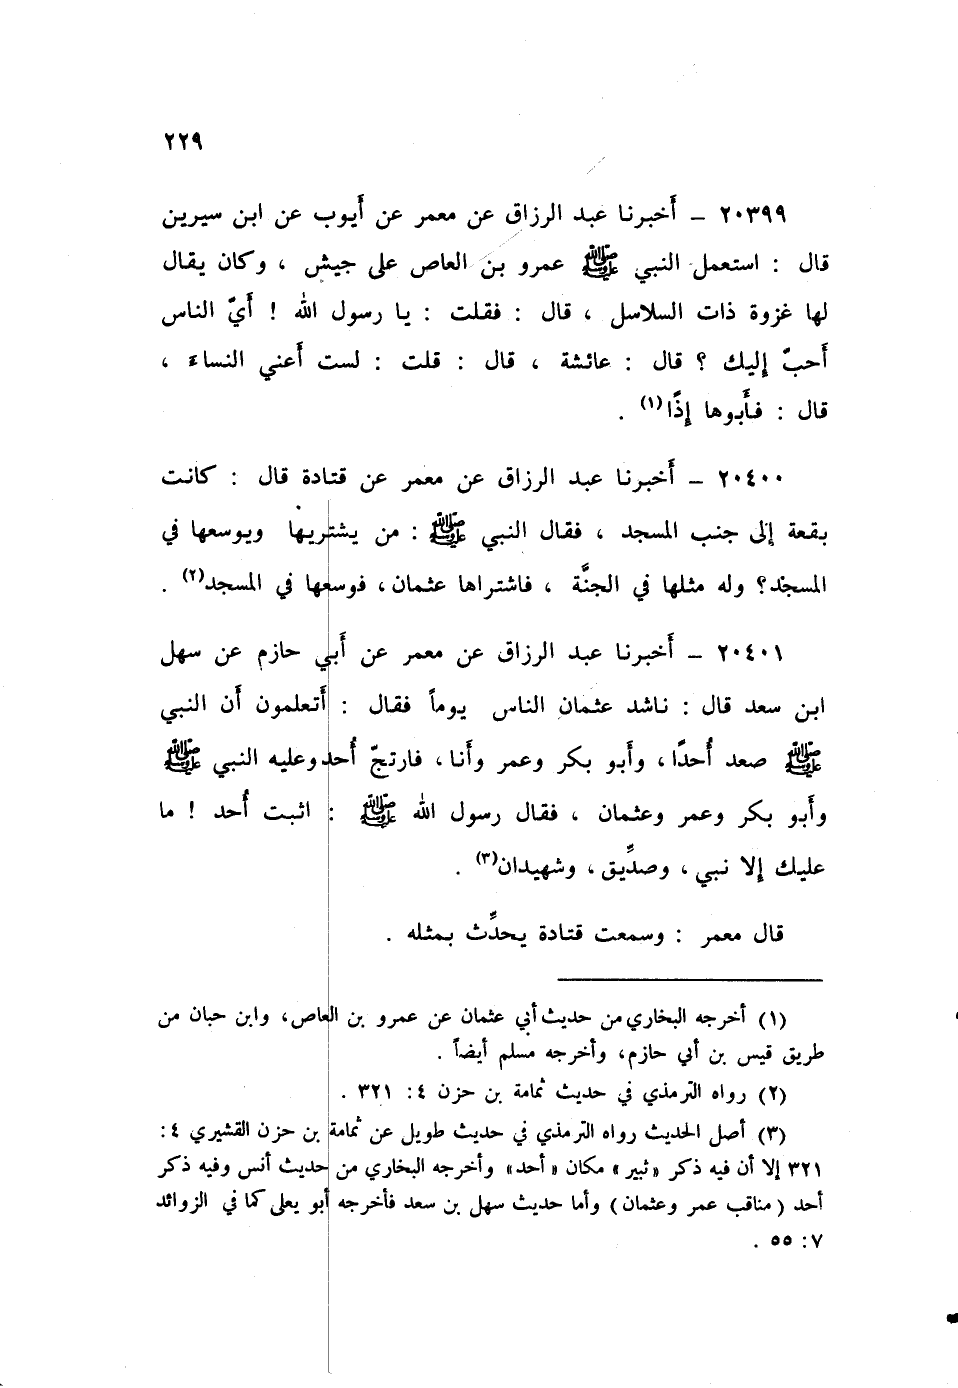 ٢٢٩
٢٠٣٩٩ – أخبرنا عبد الرزاق عن معمر عن أيوب عن ابن سيرين
قال : استعمل النبي ﷺ عمرو بن العاص على جيش ، وكان يقال
لها غزوة ذات السلاسل ، قال : فقلت : يا رسول الله ! أيّ الناس
أحبّ إليك ؟ قال : عائشة ، قال : قلت : لست أعني النساء ،
قال : فأبوها إذًا(١) .
٢٠٤٠٠ – أخبرنا عبد الرزاق عن معمر عن قتادة قال : كانت
بقعة إلى جنب المسجد ، فقال النبي ﷺ : من يشتريها ويوسعها في
المسجد؟ وله مثلها في الجنَّة ، فاشتراها عثمان ، فوسعها في المسجد(٢) .
٢٠٤٠١ – أخبرنا عبد الرزاق عن معمر عن أبي حازم عن سهل
ابن سعد قال : ناشد عثمان الناس يوماً فقال : أتعلمون أن النبي
ﷺ صعد أُحدًا ، وأبو بكر وعمر وأنا ، فارتجّ أُحد وعليه النبي ﷺ
وأبو بكر وعمر وعثمان ، فقال رسول الله ﷺ : اثبت أُحد ! ما
عليك إلا نبي ، وصدِّيق ، وشهيدان(٣) .
قال معمر : وسمعت قتادة يحدِّث بمثله .
(١) أخرجه البخاري من حديث أبي عثمان عن عمرو بن العاص، وابن حبان من
طريق قيس بن أبي حازم، وأخرجه مسلم أيضاً .
(٢) رواه الترمذي في حديث ثمامة بن حزن ٤: ٣٢١ .
(٣) أصل الحديث رواه الترمذي في حديث طويل عن ثمامة بن حزن القشيري ٤:
٣٢١ إلا أن فيه ذكر «ثبير» مكان «أحد» وأخرجه البخاري من حديث أنس وفيه ذكر
أحد (مناقب عمر وعثمان) وأما حديث سهل بن سعد فأخرجه أبو يعلى كما في الزوائد
٧: ٥٥ .